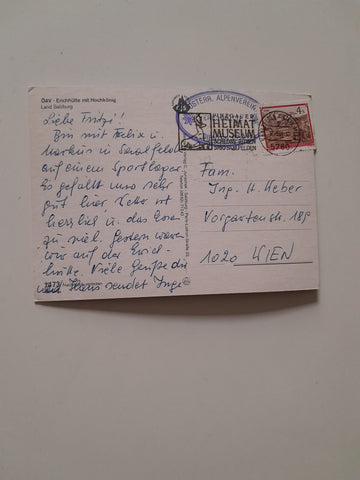 ÖAV · Erichhütte mit Hochkönig
Land Salzburg
Liebe Fritzi!
Bin mit Felix u.
Markus in Saalfeld
auf einem Sportlager.
Es gefällt uns sehr
gut hier,
herzlich u. das Essen
zu viel. Gestern waren
wir auf der Erich-
hütte. Viele Grüße dir
und Hans sendet Inge
ÖSTERR. ALPENVEREIN
PINZGAUER
HEIMAT
MUSEUM
SCHLOSS RITZEN
SAALFELDEN
5760
4
Fam.
Ing. H. Weber
Vorgartenstr.
1020 WIEN